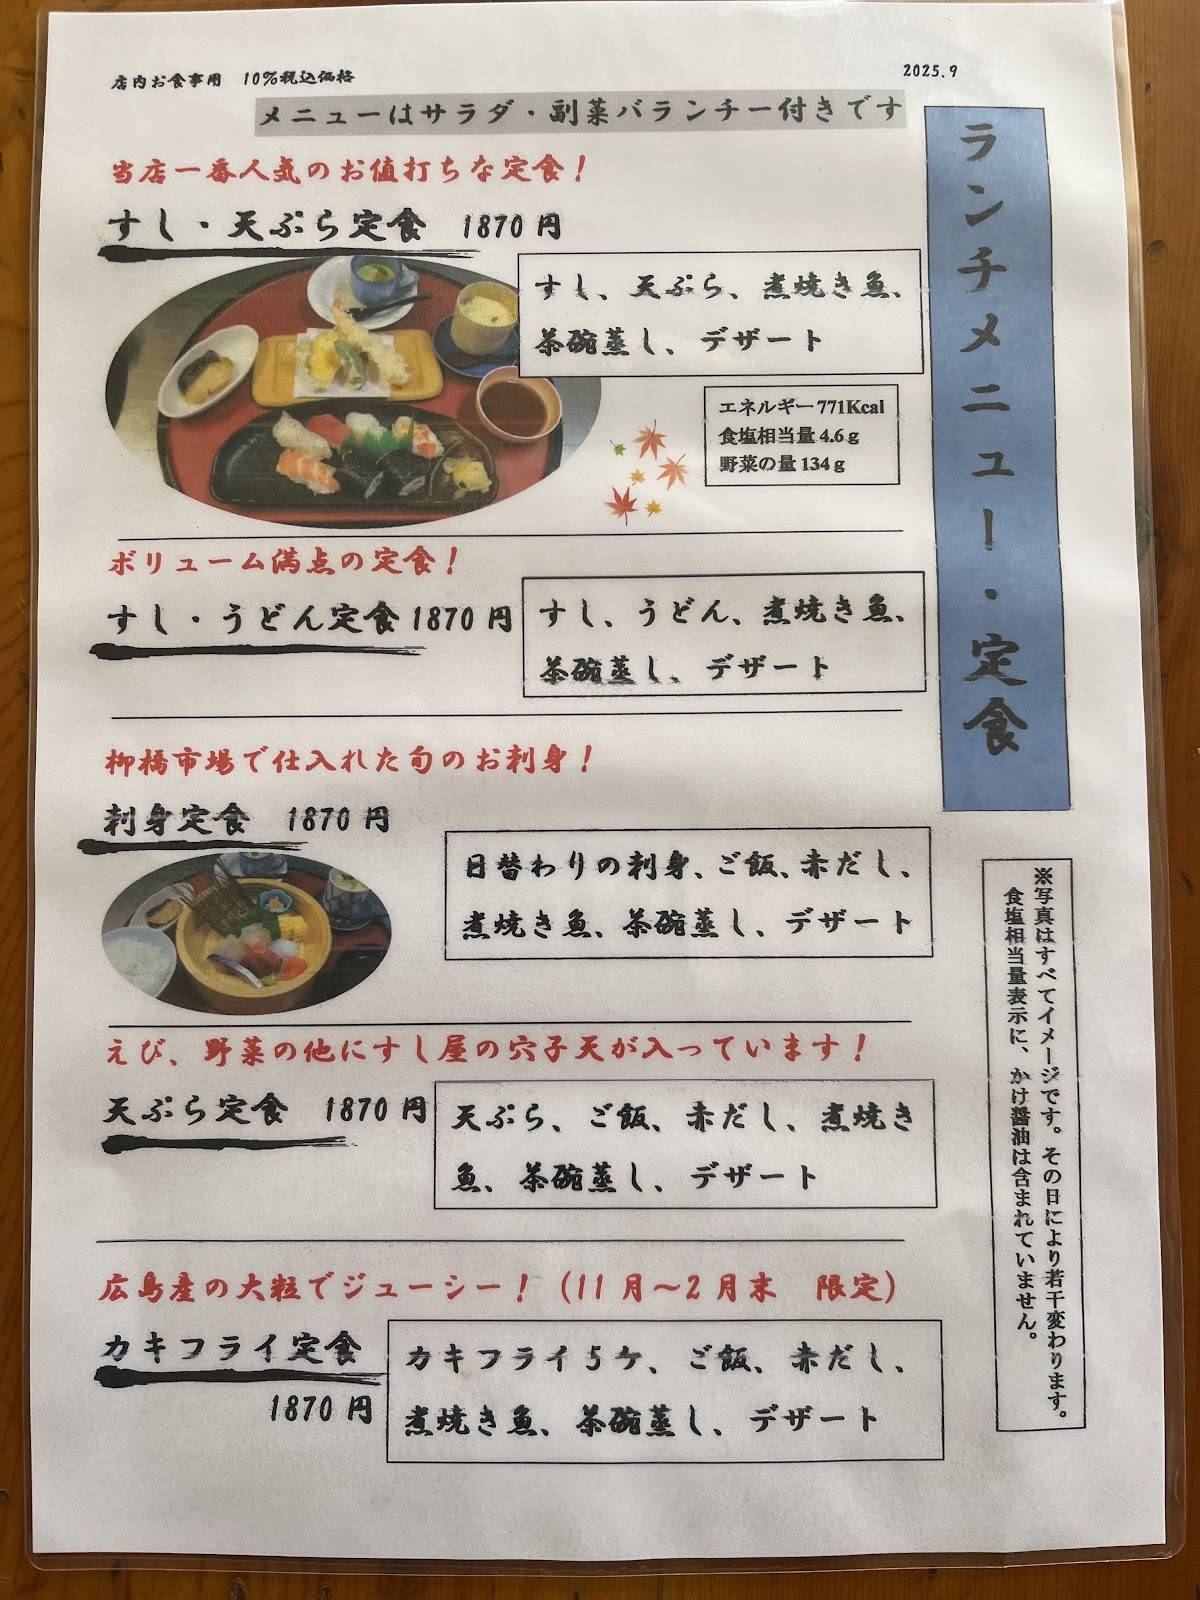 店内お食事用　10%税込価格
2025.9
メニューはサラダ・副菜バランチー付きです
ランチメニュー・定食
当店一番人気のお値打ちな定食！
すし・天ぷら定食　1870円
すし、天ぷら、煮焼き魚、
茶碗蒸し、デザート
エネルギー771Kcal
食塩相当量4.6g
野菜の量134g
ボリューム満点の定食！
すし・うどん定食1870円
すし、うどん、煮焼き魚、
茶碗蒸し、デザート
柳橋市場で仕入れた旬のお刺身！
刺身定食　1870円
日替わりの刺身、ご飯、赤だし、
煮焼き魚、茶碗蒸し、デザート
えび、野菜の他にすし屋の穴子天が入っています！
天ぷら定食　1870円
天ぷら、ご飯、赤だし、煮焼き
魚、茶碗蒸し、デザート
広島産の大粒でジューシー！（11月～2月末　限定）
カキフライ定食
1870円
カキフライ5ケ、ご飯、赤だし、
煮焼き魚、茶碗蒸し、デザート
※写真はすべてイメージです。その日により若干変わります。
食塩相当量表示に、かけ醤油は含まれていません。